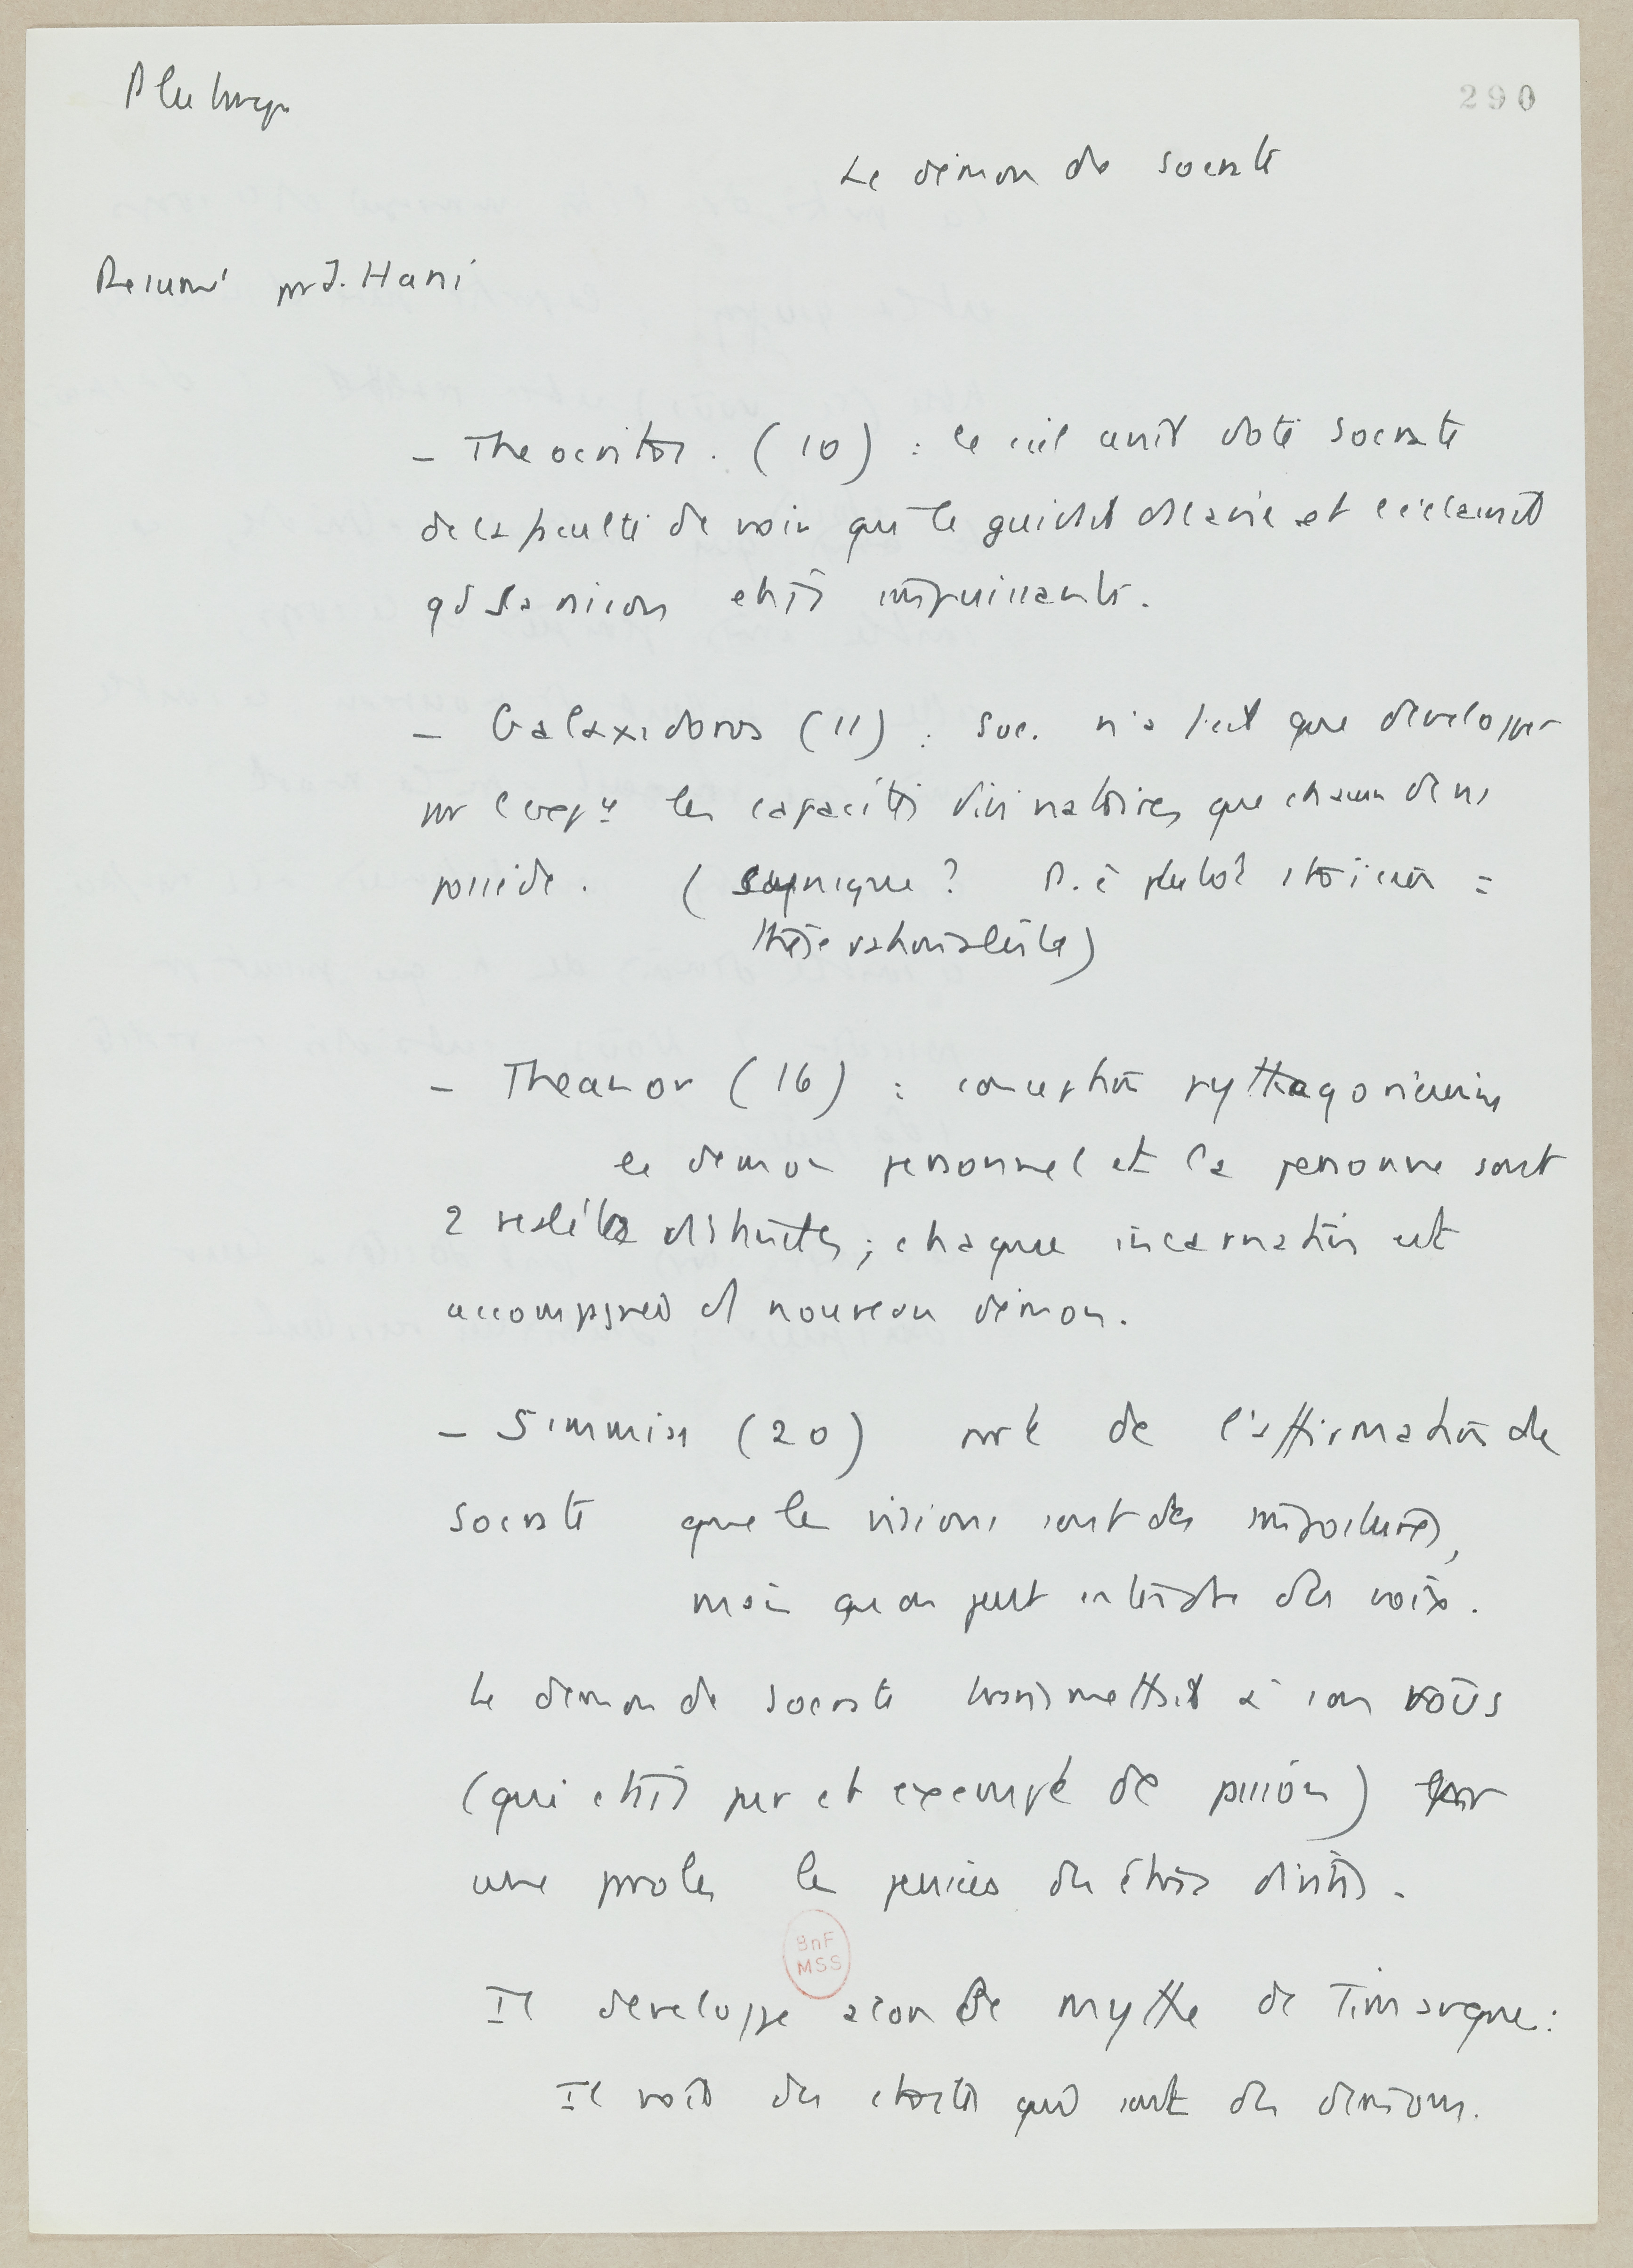 Plutarque
290
Le démon de Socrate
Résumé par J. Hani
– Theocritos. (10) : le ciel avait doté Socrate
de la faculté de voir qui le guidait ds la vie et l'éclairait
qd sa raison etait impuissante.
– Galaxidoros (11) : Soc. n'a fait que developper
par l'exp ce les capacités divinatoires que chacun de ns
possède. ( cynique ? P. ê plutôt stoicien =
thèse rationaliste)
– Theanor (16) : conception pythagoricienne
le demon personnel et la personne sont
2 réalités distinctes ; chaque incarnation est
accompagnée d'1 nouveau démon.
– Simmias (20) part de l'affirmation de
Socrate que les visions sont des impostures,
mais qu'on peut entendre des voix.
Le demon de Socrate transmettait à son νοῦς
(qui etait pur et exempt de passion)
une parole les pensées des êtres divins.
Il developpe alors le mythe de Timarque :
Il voit des etoiles qui sont des demons.
BnF
MSS